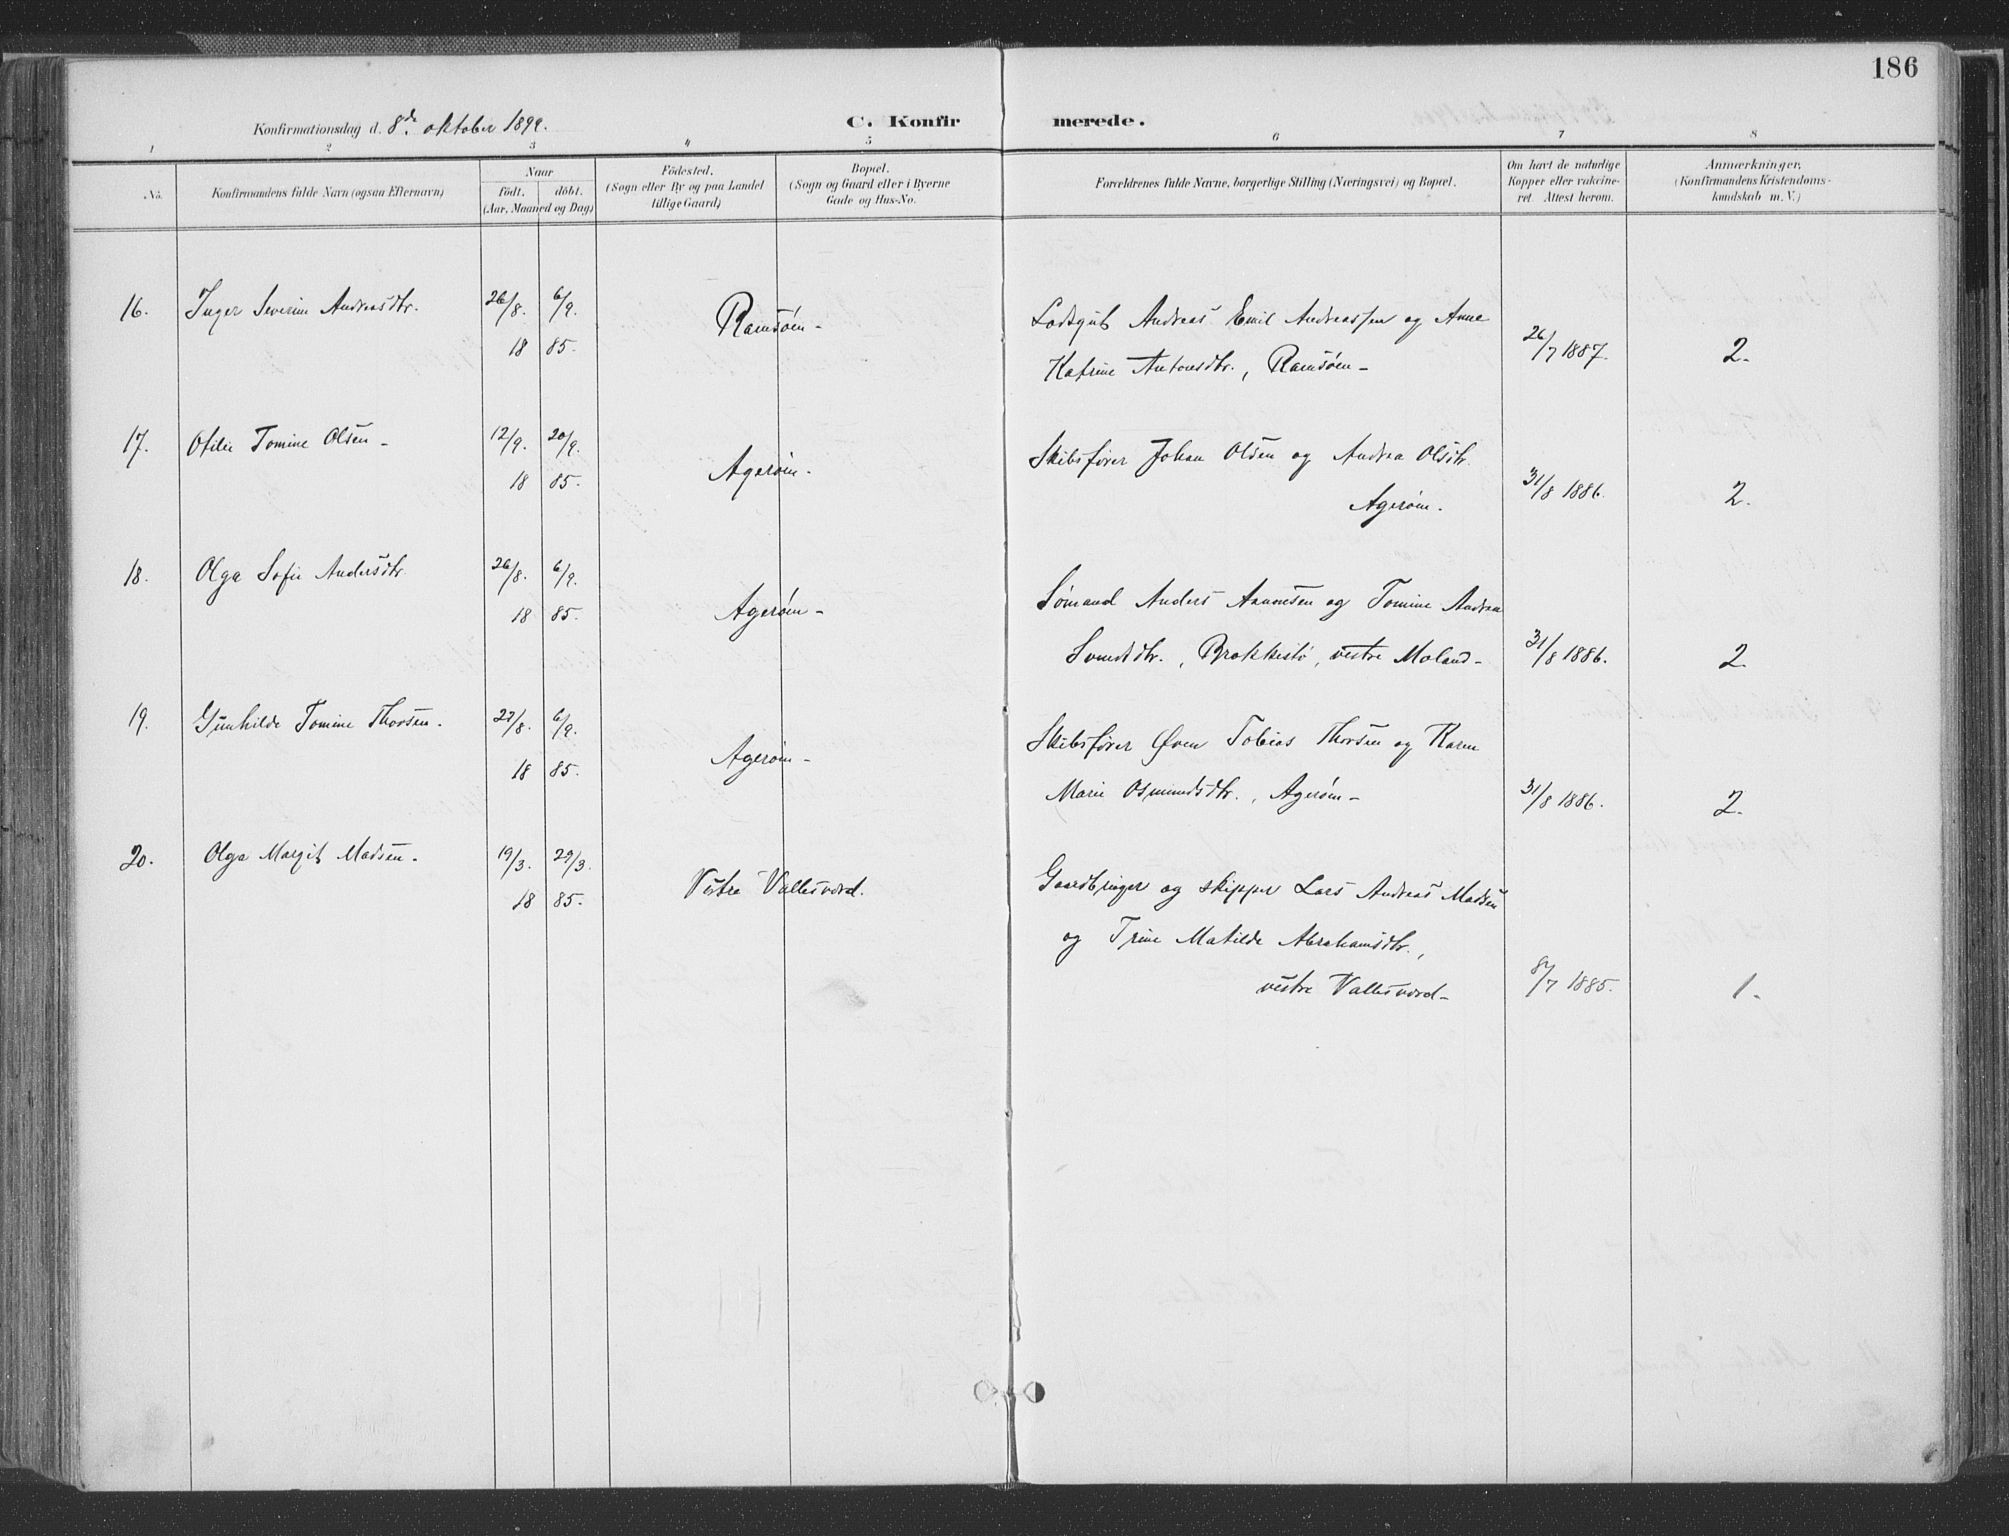 186
Konfirmationsdag d. 8de oktober 1899.
C. Konfirmerede.
1 2 3 4 5 6 7 8
No.
Konfirmandens fulde Navn (ogsaa Efternavn)
Naar
födt. döbt.
(Aar, Maaned og Dag)
Födested.
(Sogn eller By og paa Landet
tillige Gaard)
Bopæl.
(Sogn og Gaard eller i Byerne
Gade og Hus-No.
Forældrenes fulde Navne, borgerlige Stilling (Næringsvei) og Bopæl.
Om havt de naturlige
Kopper eller vakcine-
ret. Attest herom.
Anmærkninger,
(Konfirmandens Kristendoms-
kundskab m. V.)
16. Inger Severine Andreasdtr. 26/8. 6/9. Ramsöen- Lodsgut Andreas Emil Andreassen og Anne
18 85. Katrine Antonsdtr., Ramsøen- 26/7 1887. 2.
17. Otilie Tomine Olsen- 12/9. 20/9. Agerøen. Skibsfører Johan Olsen og Andrea Olsdtr.
18 85. Agerøen. 31/8 1886. 2.
18. Olga Sofie Andersdtr. 26/8. 6/9. Agerøen- Sømand Anders Aanonsen og Tomine Andrea
18 85. Svendsdtr., Brækkestø, vestre Moland- 31/8 1886. 2.
19. Gunhilde Tomine Thorsen. 27/8. 6/9. Agerøen- Skibsfører Øven Tobias Thorsen og Karen
18 85. Marie Osmundsdtr., Agerøen- 31/8 1886. 2.
20. Olga Margit Madsen. 19/3. 29/3. Vestre Vallesværd. Gaardbruger og skipper Lars Andreas Madsen
18 85. og Trine Matilde Abrahamsdtr.,
vestre Vallesværd- 8/7 1885. 1.